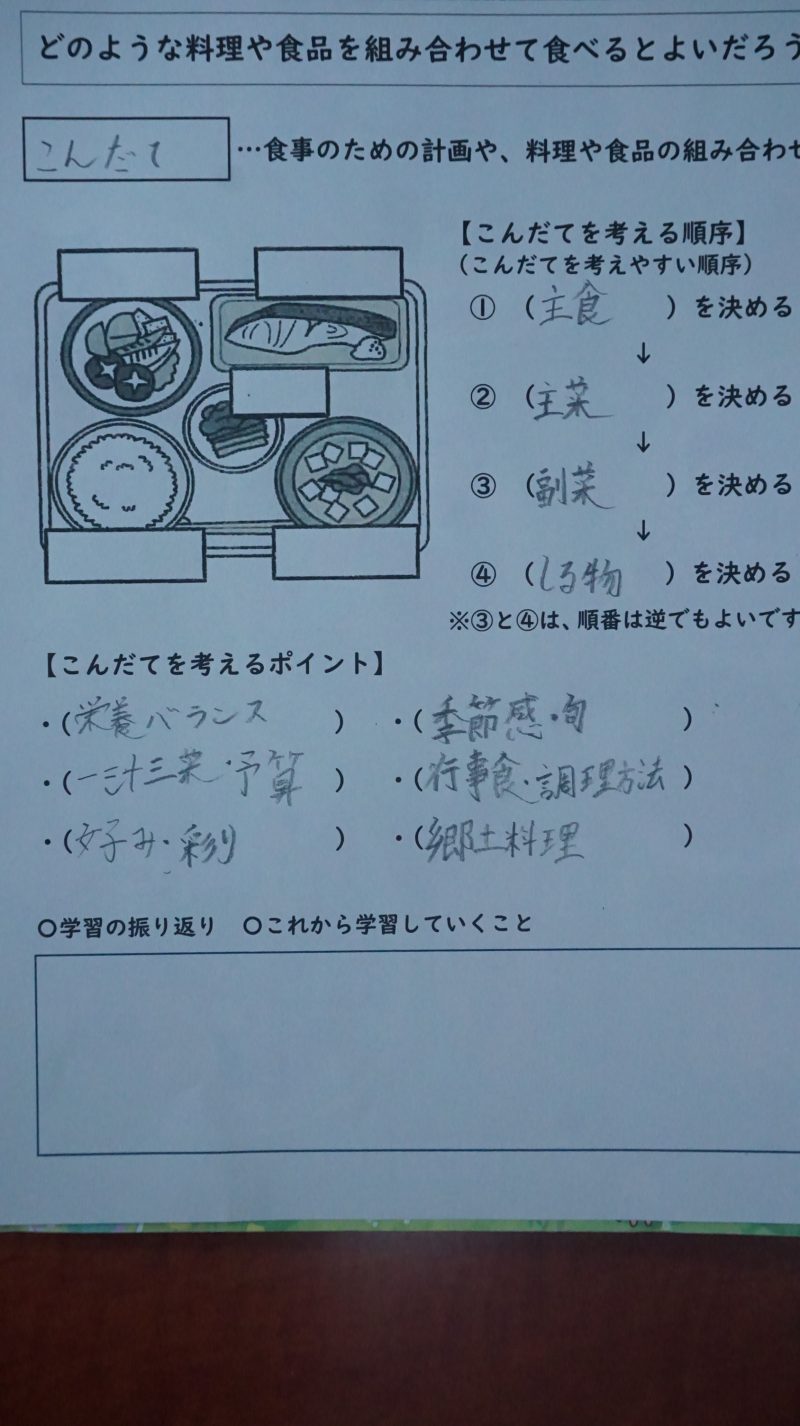 どのような料理や食品を組み合わせて食べるとよいだろう
こんだて …食事のための計画や、料理や食品の組み合わせ
【こんだてを考える順序】
（こんだてを考えやすい順序）
① （主食 ）を決める
↓
② （主菜 ）を決める
↓
③ （副菜 ）を決める
↓
④ （しる物 ）を決める
※③と④は、順番は逆でもよいです
【こんだてを考えるポイント】
・（栄養バランス ） ・（季節感・旬 ）
・（一汁三菜・予算 ） ・（行事食・調理方法 ）
・（好み・彩り ） ・（郷土料理 ）
〇学習の振り返り 〇これから学習していくこと